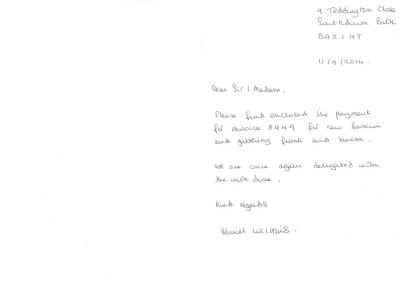 9 Teddington Close
Southdown Bath
BA2 1HT
11/9/2014.
Dear Sir / Madam.
Please find enclosed the payment
for invoice 8449 for new fascia
and guttering front and back.
We are once again delighted with
the work done.
Kind regards
Muriel Wilkins.